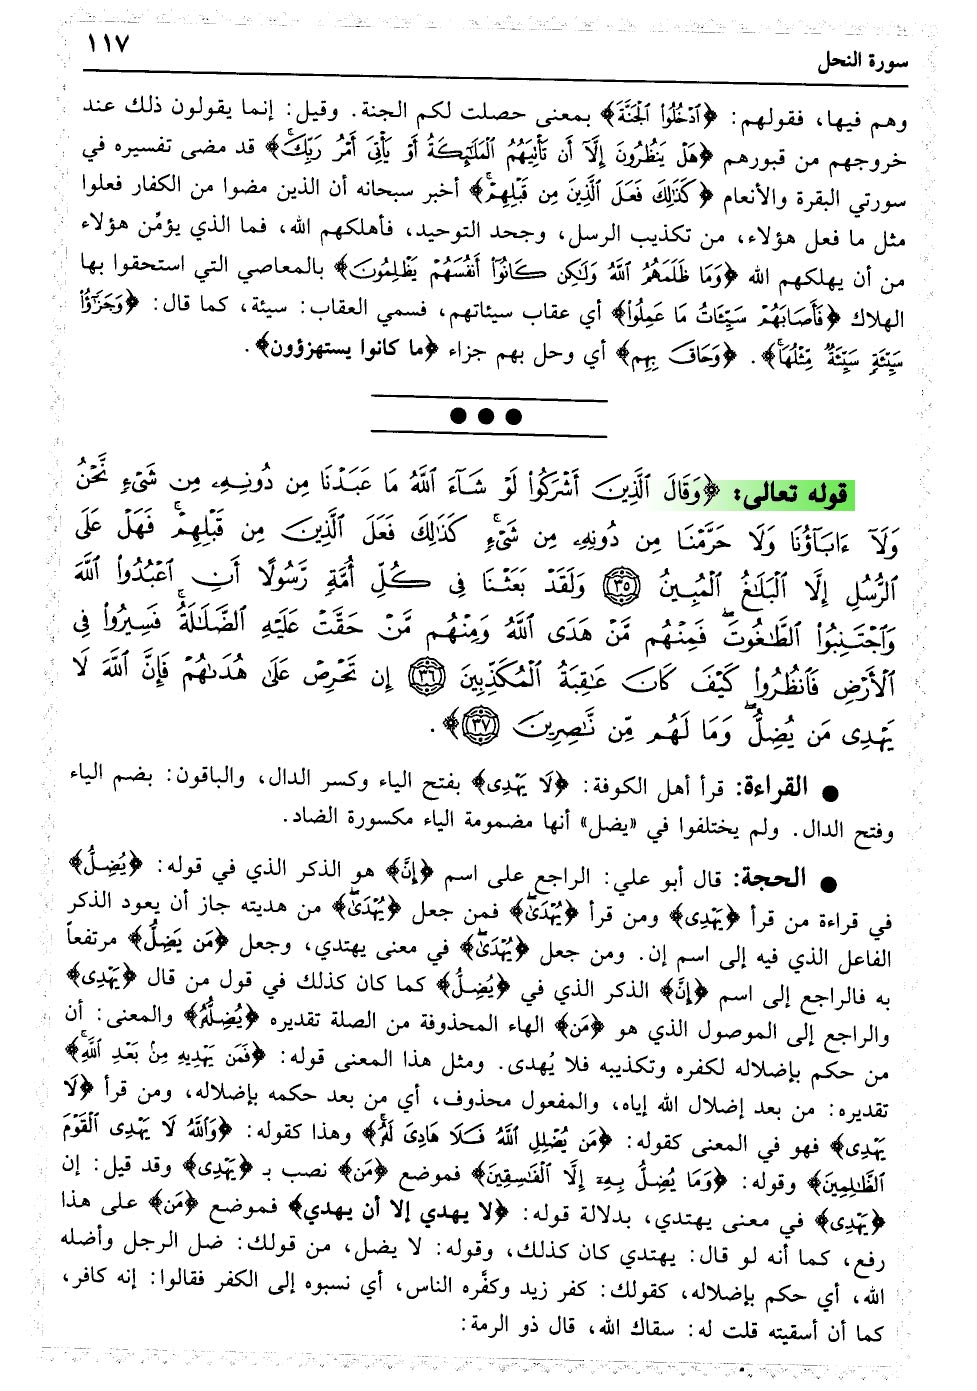 سورة النحل ١١٧
وهم فيها، فقولهم: ﴿ٱدْخُلُوا۟ ٱلْجَنَّةَ﴾ بمعنى حصلت لكم الجنة. وقيل: إنما يقولون ذلك عند
خروجهم من قبورهم ﴿هَلْ يَنظُرُونَ إِلَّآ أَن تَأْتِيَهُمُ ٱلْمَلَٰٓئِكَةُ أَوْ يَأْتِىَ أَمْرُ رَبِّكَ ۚ﴾ قد مضى تفسيره في
سورتي البقرة والأنعام ﴿كَذَٰلِكَ فَعَلَ ٱلَّذِينَ مِن قَبْلِهِمْ ۚ﴾ أخبر سبحانه أن الذين مضوا من الكفار فعلوا
مثل ما فعل هؤلاء، من تكذيب الرسل، وجحد التوحيد، فأهلكهم الله، فما الذي يؤمِّن هؤلاء
من أن يهلكهم الله ﴿وَمَا ظَلَمَهُمُ ٱللَّهُ وَلَٰكِن كَانُوٓا۟ أَنفُسَهُمْ يَظْلِمُونَ﴾ بالمعاصي التي استحقوا بها
الهلاك ﴿فَأَصَابَهُمْ سَيِّـَٔاتُ مَا عَمِلُوا۟﴾ أي عقاب سيئاتهم، فسمي العقاب: سيئة، كما قال: ﴿وَجَزَٰٓؤُا۟
سَيِّئَةٍ سَيِّئَةٌ مِّثْلُهَا ۖ﴾. ﴿وَحَاقَ بِهِم﴾ أي وحل بهم جزاء ﴿ما كانوا يستهزؤون﴾.
قوله تعالى: ﴿وَقَالَ ٱلَّذِينَ أَشْرَكُوا۟ لَوْ شَآءَ ٱللَّهُ مَا عَبَدْنَا مِن دُونِهِۦ مِن شَىْءٍ نَّحْنُ
وَلَآ ءَابَآؤُنَا وَلَا حَرَّمْنَا مِن دُونِهِۦ مِن شَىْءٍ ۚ كَذَٰلِكَ فَعَلَ ٱلَّذِينَ مِن قَبْلِهِمْ ۚ فَهَلْ عَلَى
ٱلرُّسُلِ إِلَّا ٱلْبَلَٰغُ ٱلْمُبِينُ ٣٥ وَلَقَدْ بَعَثْنَا فِى كُلِّ أُمَّةٍ رَّسُولًا أَنِ ٱعْبُدُوا۟ ٱللَّهَ
وَٱجْتَنِبُوا۟ ٱلطَّٰغُوتَ ۖ فَمِنْهُم مَّنْ هَدَى ٱللَّهُ وَمِنْهُم مَّنْ حَقَّتْ عَلَيْهِ ٱلضَّلَٰلَةُ ۚ فَسِيرُوا۟ فِى
ٱلْأَرْضِ فَٱنظُرُوا۟ كَيْفَ كَانَ عَٰقِبَةُ ٱلْمُكَذِّبِينَ ٣٦ إِن تَحْرِصْ عَلَىٰ هُدَىٰهُمْ فَإِنَّ ٱللَّهَ لَا
يَهْدِى مَن يُضِلُّ ۖ وَمَا لَهُم مِّن نَّٰصِرِينَ ٣٧﴾.
● القراءة: قرأ أهل الكوفة: ﴿لَا يَهْدِى﴾ بفتح الياء وكسر الدال، والباقون: بضم الياء
وفتح الدال. ولم يختلفوا في «يضل» أنها مضمومة الياء مكسورة الضاد.
● الحجة: قال أبو علي: الراجع على اسم ﴿إِنَّ﴾ هو الذكر الذي في قوله: ﴿يُضِلُّ﴾
في قراءة من قرأ ﴿يَهْدِى﴾ ومن قرأ ﴿يُهْدَىٰ ۖ﴾ فمن جعل ﴿يُهْدَىٰ ۖ﴾ من هديته جاز أن يعود الذكر
الفاعل الذي فيه إلى اسم إن. ومن جعل ﴿يُهْدَىٰ ۖ﴾ في معنى يهتدي، وجعل ﴿مَن يَضِلُّ﴾ مرتفعاً
به فالراجع إلى اسم ﴿إِنَّ﴾ الذكر الذي في ﴿يُضِلُّ﴾ كما كان كذلك في قول من قال ﴿يَهْدِى﴾
والراجع إلى الموصول الذي هو ﴿مَن﴾ الهاء المحذوفة من الصلة تقديره ﴿يُضِلُّهُ﴾ والمعنى: أن
من حكم بإضلاله لكفره وتكذيبه فلا يُهدى. ومثل هذا المعنى قوله: ﴿فَمَن يَهْدِيهِ مِنۢ بَعْدِ ٱللَّهِ ۚ﴾
تقديره: من بعد إضلال الله إياه، والمفعول محذوف، أي من بعد حكمه بإضلاله، ومن قرأ ﴿لَا
يَهْدِى﴾ فهو في المعنى كقوله: ﴿مَن يُضْلِلِ ٱللَّهُ فَلَا هَادِىَ لَهُۥ ۚ﴾ وهذا كقوله: ﴿وَٱللَّهُ لَا يَهْدِى ٱلْقَوْمَ
ٱلظَّٰلِمِينَ﴾ وقوله: ﴿وَمَا يُضِلُّ بِهِۦٓ إِلَّا ٱلْفَٰسِقِينَ﴾ فموضع ﴿مَن﴾ نصب بـ ﴿يَهْدِى﴾ وقد قيل: إن
﴿يَهْدِى﴾ في معنى يهتدي، بدلالة قوله: ﴿لا يهدي إلا أن يهدي﴾ فموضع ﴿مَن﴾ على هذا
رفع، كما أنه لو قال: يهتدي كان كذلك، وقوله: لا يضل، من قولك: ضل الرجل وأضله
الله، أي حكم بإضلاله، كقولك: كفر زيد وكفَّره الناس، أي نسبوه إلى الكفر فقالوا: إنه كافر،
كما أن أسقيته قلت له: سقاك الله، قال ذو الرمة: